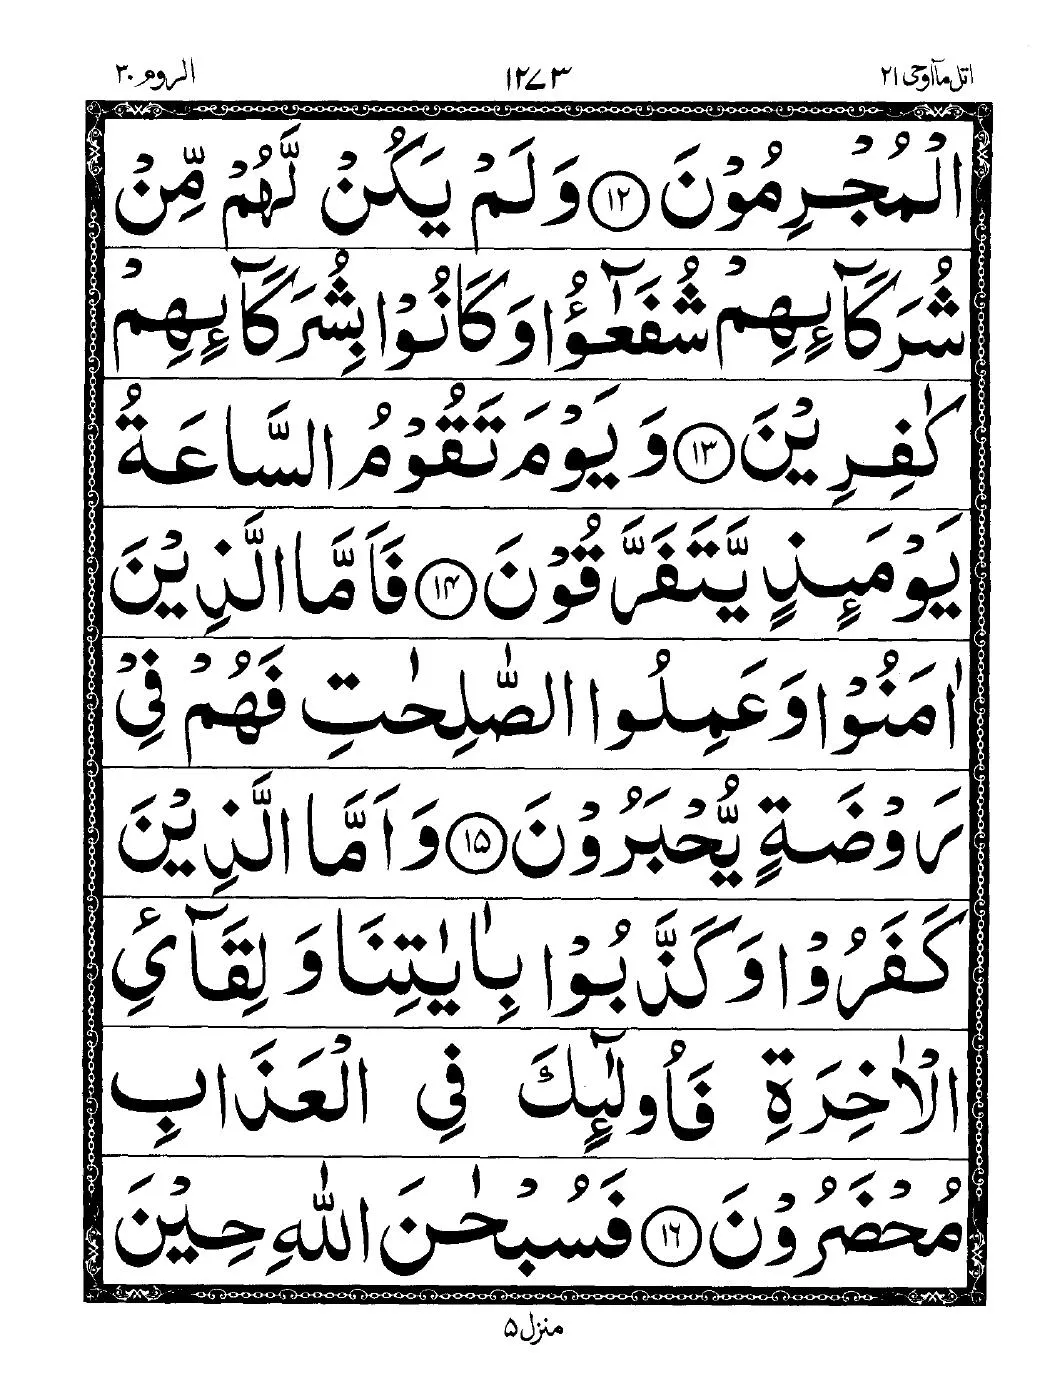 اتل مآاوحی ۲۱ ۱۲۷۳ الروم ۳۰
الْمُجْرِمُوْنَ ۝۱۲ وَلَمْ يَكُنْ لَّهُمْ مِّنْ
شُرَكَآىِٕهِمْ شُفَعٰٓؤُا وَكَانُوْا بِشُرَكَآىِٕهِمْ
كٰفِرِيْنَ ۝۱۳ وَيَوْمَ تَقُوْمُ السَّاعَةُ
يَوْمَىِٕذٍ يَّتَفَرَّقُوْنَ ۝۱۴ فَاَمَّا الَّذِيْنَ
اٰمَنُوْا وَعَمِلُوا الصّٰلِحٰتِ فَهُمْ فِيْ
رَوْضَةٍ يُّحْبَرُوْنَ ۝۱۵ وَاَمَّا الَّذِيْنَ
كَفَرُوْا وَكَذَّبُوْا بِاٰيٰتِنَا وَلِقَآئِ
الْاٰخِرَةِ فَاُولٰٓىِٕكَ فِي الْعَذَابِ
مُحْضَرُوْنَ ۝۱۶ فَسُبْحٰنَ اللّٰهِ حِيْنَ
منزل ۵